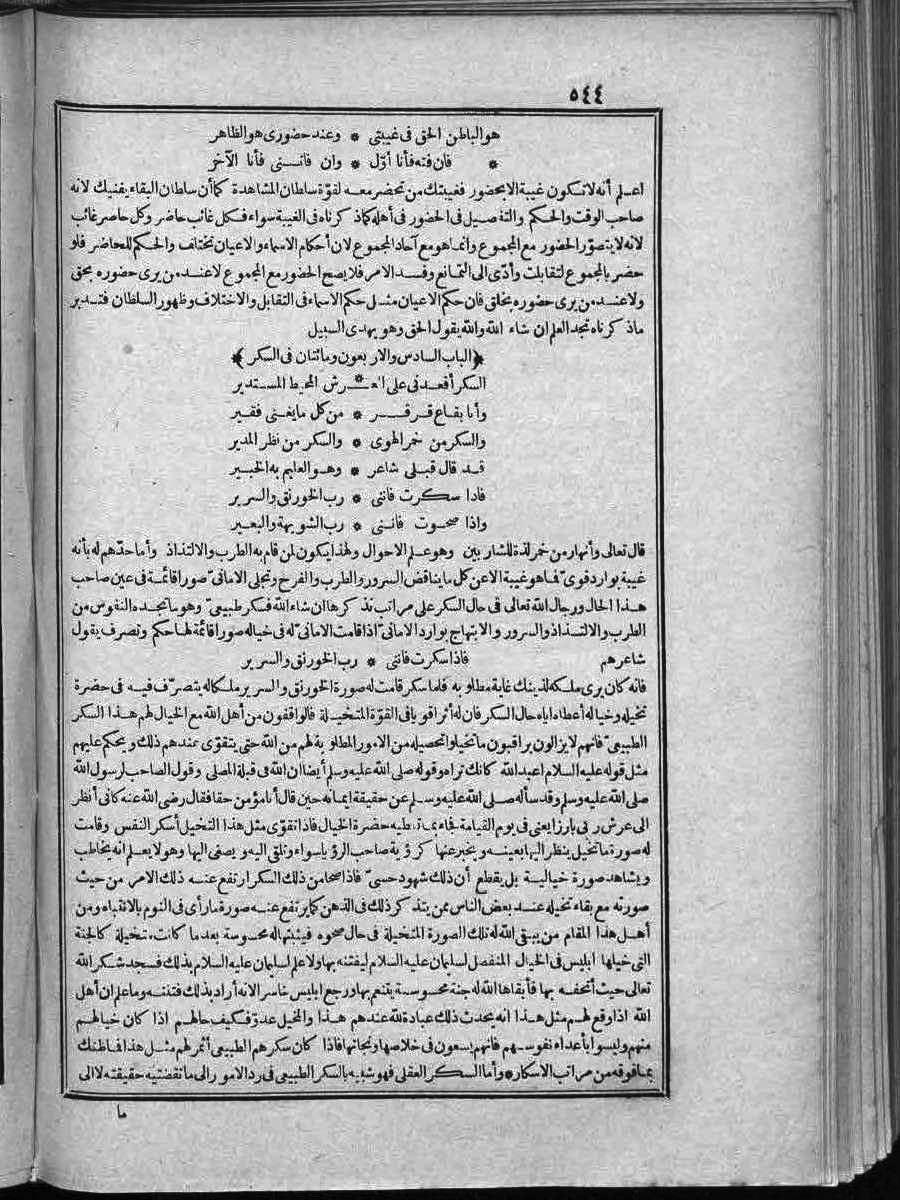 ٥٤٤
هو الباطن الحق فى غيبتى * وعند حضورى هو الظاهر
* فان فته فأنا أوّل * وان فاتــنى فأنا الآخر
اعلم أنه لا تكون غيبة الا بحضور فغيبتك من تحضر معه لقوّة سلطان المشاهدة كما أن سلطان البقاء يفنيك لانه
صاحب الوقت والحكم والتفصيل فى الحضور فى أهله كما ذكرناه فى الغيبة سواء فكل غائب حاضر وكل حاضر غائب
لانه لا يتصوّر الحضور مع المجموع وانما هو مع آحاد المجموع لان أحكام الاسماء والاعيان تختلف والحكم للحاضر فلو
حضر بالمجموع لتقابلت وأدّى الى التمانع وفسد الامر فلا يصح الحضور مع المجموع لا عند من يرى حضوره بحق
ولا عند من يرى حضوره بخلق فان حكم الاعيان مثل حكم الاسماء فى التقابل والاختلاف وظهور السلطان فتدبر
ماذكرناه تجد العلم ان شاء الله والله يقول الحق وهو يهدى السبيل
﴿الباب السادس والاربعون ومائتان فى السكر﴾
السكر أقعدنى على العـ * ـرش المحيط المستدير
وأنا بقاع قرقر * من كل مايغنى فقير
والسكر من خمر الهوى * والسكر من نظر المدير
قد قال قبلى شاعر * وهو العليم به الخبير
فاذا سكرت فاننى * رب الخورنق والسرير
واذا صحوت فاننى * رب الشويهة والبعير
قال تعالى وأنهار من خمر لذة للشاربين وهو علم الاحوال ولهذا يكون لمن قام به الطرب والالتذاذ وأما حدّهم له بأنه
غيبة بوارد قوىّ فما هو غيبة الا عن كل ما يناقض السرور والطرب والفرح وتجلى الامانىّ صورا قائمة فى عين صاحب
هذا الحال ورجال الله تعالى فى حال السكر على مراتب نذكرها ان شاء الله فسكر طبيعىّ وهو ما تجده النفوس من
الطرب والالتذاذ والسرور والابتهاج بوارد الامانىّ اذا قامت الامانىّ له فى خياله صورا قائمة لها حكم وتصرف يقول
شاعرهم فاذا سكرت فاننى * رب الخورنق والسرير
فانه كان يرى ملكه لذينك غاية مطلوبه فلما سكر قامت له صورة الخورنق والسرير ملكا له يتصرّف فيه فى حضرة
تخيله وخياله أعطاه اياه حال السكر فان له أثرا قويا فى القوّة المتخيلة فالواقفون من أهل الله مع الخيال لهم هذا السكر
الطبيعىّ فانهم لا يزالون يراقبون ما تخيلوا تحصيله من الامور المطلوبة لهم من الله حتى يتقوّى عندهم ذلك ويحكم عليهم
مثل قوله عليه السلام اعبد الله كانك تراه وقوله صلى الله عليه وسلم أيضا ان الله فى قبلة المصلى وقول الصاحب لرسول الله
صلى الله عليه وسلم وقد سأله صلى الله عليه وسلم عن حقيقة ايمانه حين قال أنا مؤمن حقا فقال رضى الله عنه كانى أنظر
الى عرش ربى بارزا يعنى فى يوم القيامة فجاء بما تعطيه حضرة الخيال فاذا تقوّى مثل هذا التخيل أسكر النفس وقامت
له صورة ما تخيل ينظر اليها بعينه ويخبر عنها كرؤية صاحب الرؤيا سواء وتلقى اليه ويصغى اليها وهو لا يعلم انه يخاطب
ويشاهد صورة خيالية بل يقطع أن ذلك شهود حسىّ فاذا صحا من ذلك السكر ارتفع عنه ذلك الامر من حيث
صورته مع بقاء تخيله عند بعض الناس ممن يتذكر ذلك فى الذهن كما يرتفع عنه صورة ما رأى فى النوم بالانتباه ومن
أهل هذا المقام من يبقى الله له تلك الصورة المتخيلة فى حال صحوه فيثبتها له محسوسة بعد ما كانت متخيلة كالجنة
التى خيلها ابليس فى الخيال المنفصل لسليمان عليه السلام ليفتنه بها ولا علم لسليمان عليه السلام بذلك فسجد شكر الله
تعالى حيث أتحفه بها فأبقاها الله له جنة محسوسة يتنعم بها ورجع ابليس خاسرا لانه أراد بذلك فتنته وما علم ان أهل
الله اذا وقع لهم مثل هذا انه يحدث ذلك عبادة لله عندهم هذا والمخيل عدوّ فكيف حالهم اذا كان خيالهم
منهم وليسوا بأعداء نفوسهم فانهم يسعون فى خلاصها ونجاتها فاذا كان سكرهم الطبيعى أثمر لهم مثل هذا فما ظنك
بما فوقه من مراتب الاسكار * وأما السكر العقلى فهو شبيه بالسكر الطبيعى فى رد الامور الى ما تقتضيه حقيقته لا الى
ما